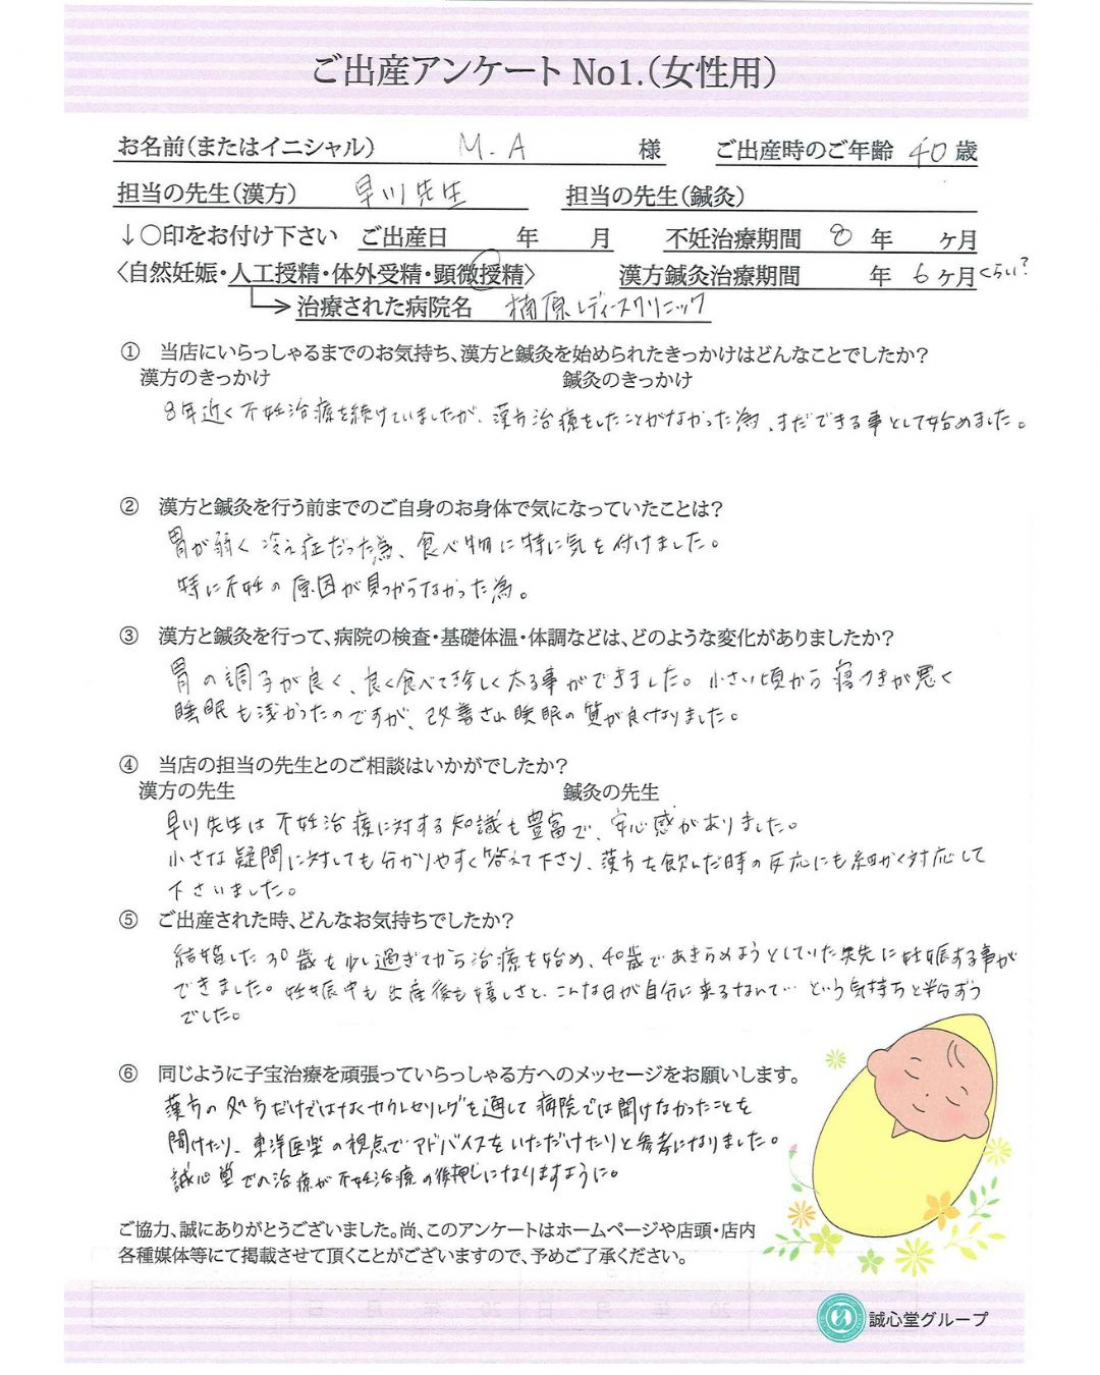 ご出産アンケート No1.(女性用)
お名前(またはイニシャル) M.A 様 ご出産時のご年齢 40 歳
担当の先生(漢方) 早川先生 担当の先生(鍼灸)
↓○印をお付け下さい ご出産日 年 月 不妊治療期間 8 年 ヶ月
〈自然妊娠・人工授精・体外受精・顕微授精〉 漢方鍼灸治療期間 年 6 ヶ月くらい?
→治療された病院名 楠原レディースクリニック
① 当店にいらっしゃるまでのお気持ち、漢方と鍼灸を始められたきっかけはどんなことでしたか?
漢方のきっかけ 鍼灸のきっかけ
8年近く不妊治療を続けていましたが、漢方治療をしたことがなかった為、まだできる事として始めました。
② 漢方と鍼灸を行う前までのご自身のお身体で気になっていたことは?
胃が弱く冷え症だった為、食べ物に特に気を付けました。
特に不妊の原因が見つからなかった為。
③ 漢方と鍼灸を行って、病院の検査・基礎体温・体調などは、どのような変化がありましたか?
胃の調子が良く、良く食べて珍しく太る事ができました。小さい頃から寝つきが悪く
睡眠も浅かったのですが、改善され睡眠の質が良くなりました。
④ 当店の担当の先生とのご相談はいかがでしたか?
漢方の先生 鍼灸の先生
早川先生は不妊治療に対する知識も豊富で、安心感がありました。
小さな疑問に対しても分かりやすく答えて下さり、漢方を飲んだ時の反応にも細かく対応して
下さいました。
⑤ ご出産された時、どんなお気持ちでしたか?
結婚した30歳を少し過ぎてから治療を始め、40歳であきらめようとしていた矢先に妊娠する事が
できました。妊娠中も出産後も嬉しさと、こんな日が自分に来るなんて…という気持ちと半分ずつ
でした。
⑥ 同じように子宝治療を頑張っていらっしゃる方へのメッセージをお願いします。
漢方の処方だけではなくカウンセリングを通して病院では聞けなかったことを
聞けたり、東洋医学の視点でアドバイスをいただけたりと参考になりました。
誠心堂での治療が不妊治療の後押しになりますように。
ご協力、誠にありがとうございました。尚、このアンケートはホームページや店頭・店内
各種媒体等にて掲載させて頂くことがございますので、予めご了承ください。
誠心堂グループ